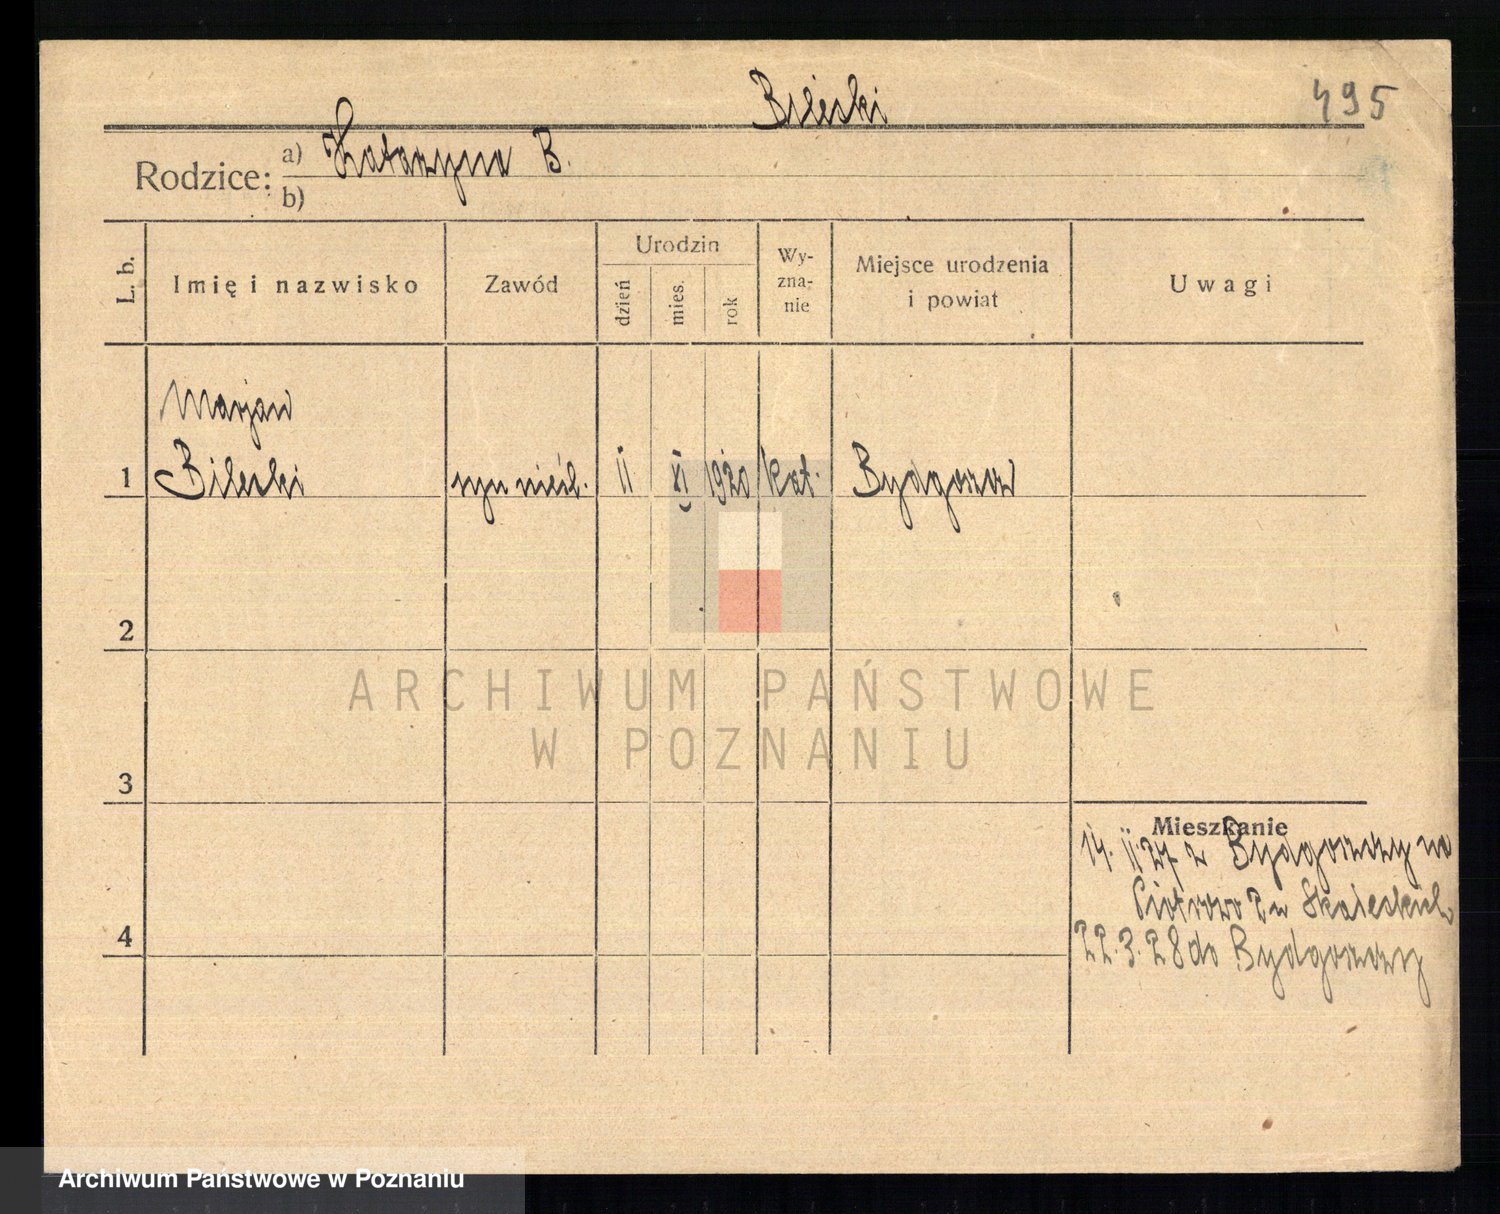 Bileski
495
Rodzice: a) Katarzyna B.
b)
L. b.
Imię i nazwisko
Zawód
Urodzin
dzień
mies.
rok
Wy-
zna-
nie
Miejsce urodzenia
i powiat
Uwagi
Marjan
1 Bileski syn nieśl. 11 XI 1920 kat. Bydgoszcz
2
3
4
Mieszkanie
14. 11. 27 z Bydgoszczy na
Piotrowo 2 u
22. 3. 28 do Bydgoszczy
ARCHIWUM PAŃSTWOWE
W POZNANIU
Archiwum Państwowe w Poznaniu